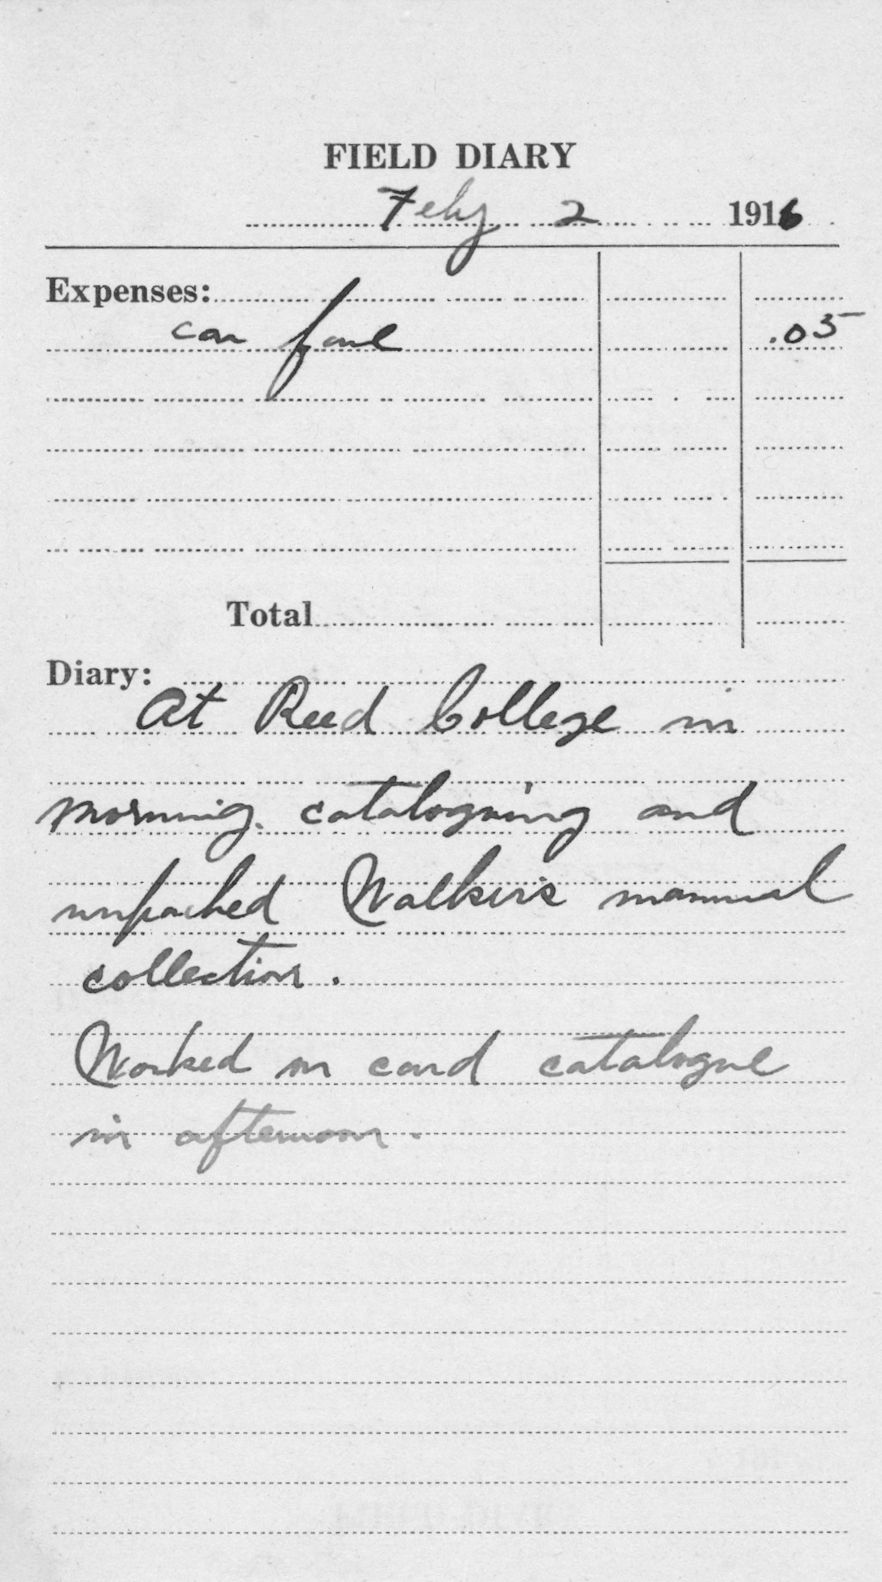 FIELD DIARY
Feby 2 1916
Expenses:
car fare .05
Total
Diary:
At Reed College in
morning. cataloguing and
unpacked Walker's mammal
collection.
Worked on card catalogue
in afternoon.